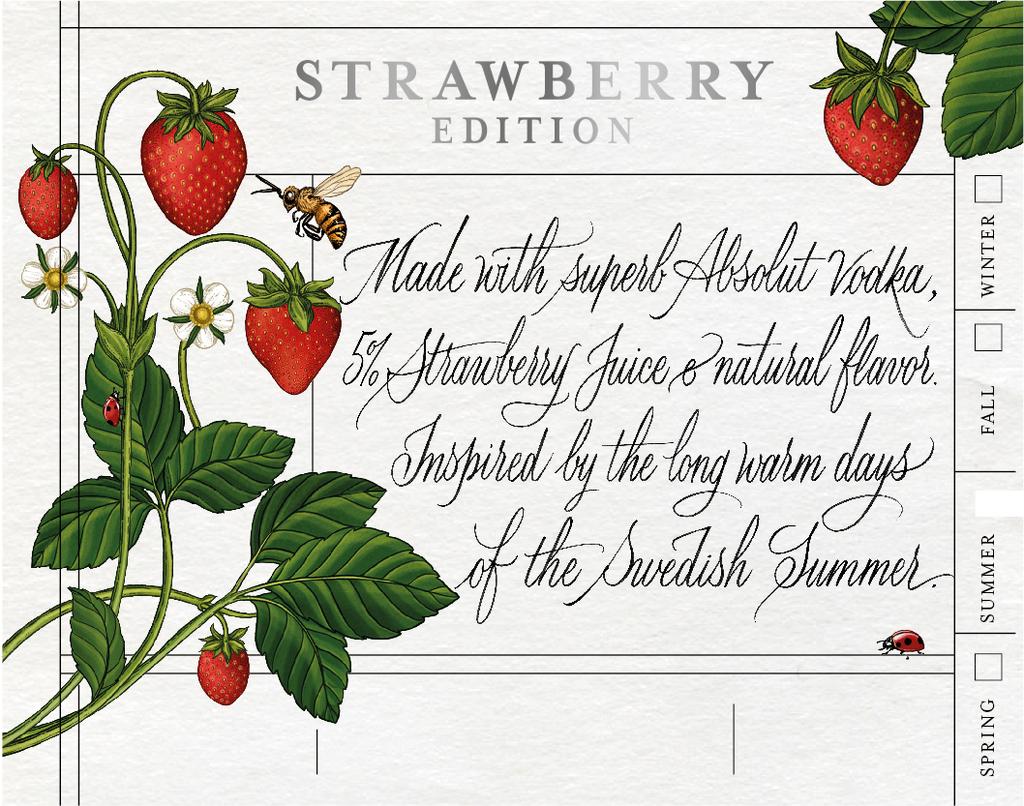 STRAWBERRY
EDITION
Made with superb Absolut Vodka,
5% Strawberry Juice & natural flavor.
Inspired by the long warm days
of the Swedish Summer.
WINTER
FALL
SUMMER
SPRING